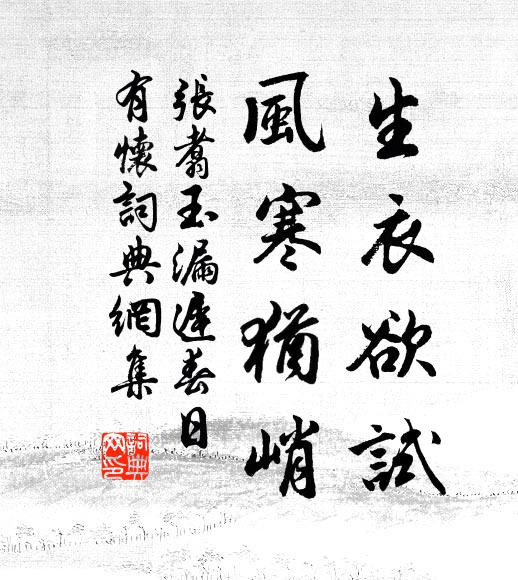 生衣欲試
風寒猶峭
張翥玉漏遲春日
有懷詞典網集
詞典
网印